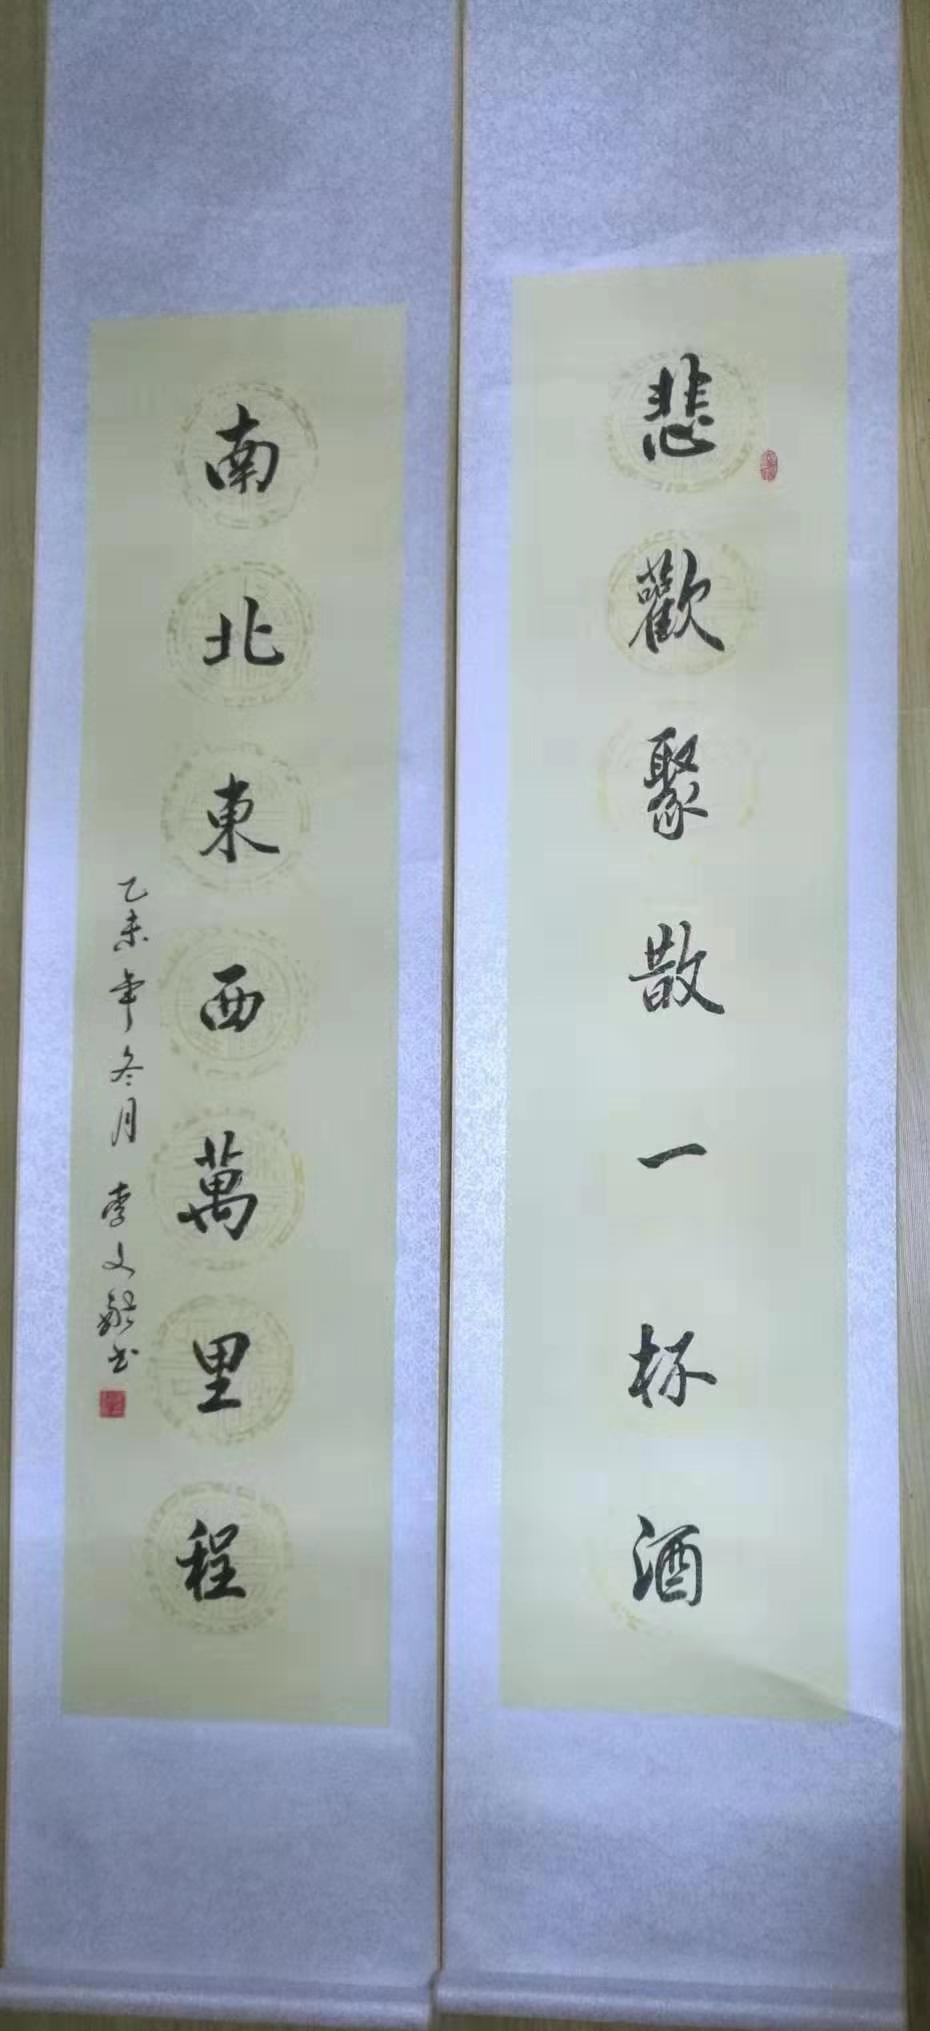 悲歡聚散一杯酒
南北東西萬里程
乙未年冬月 李文啟书